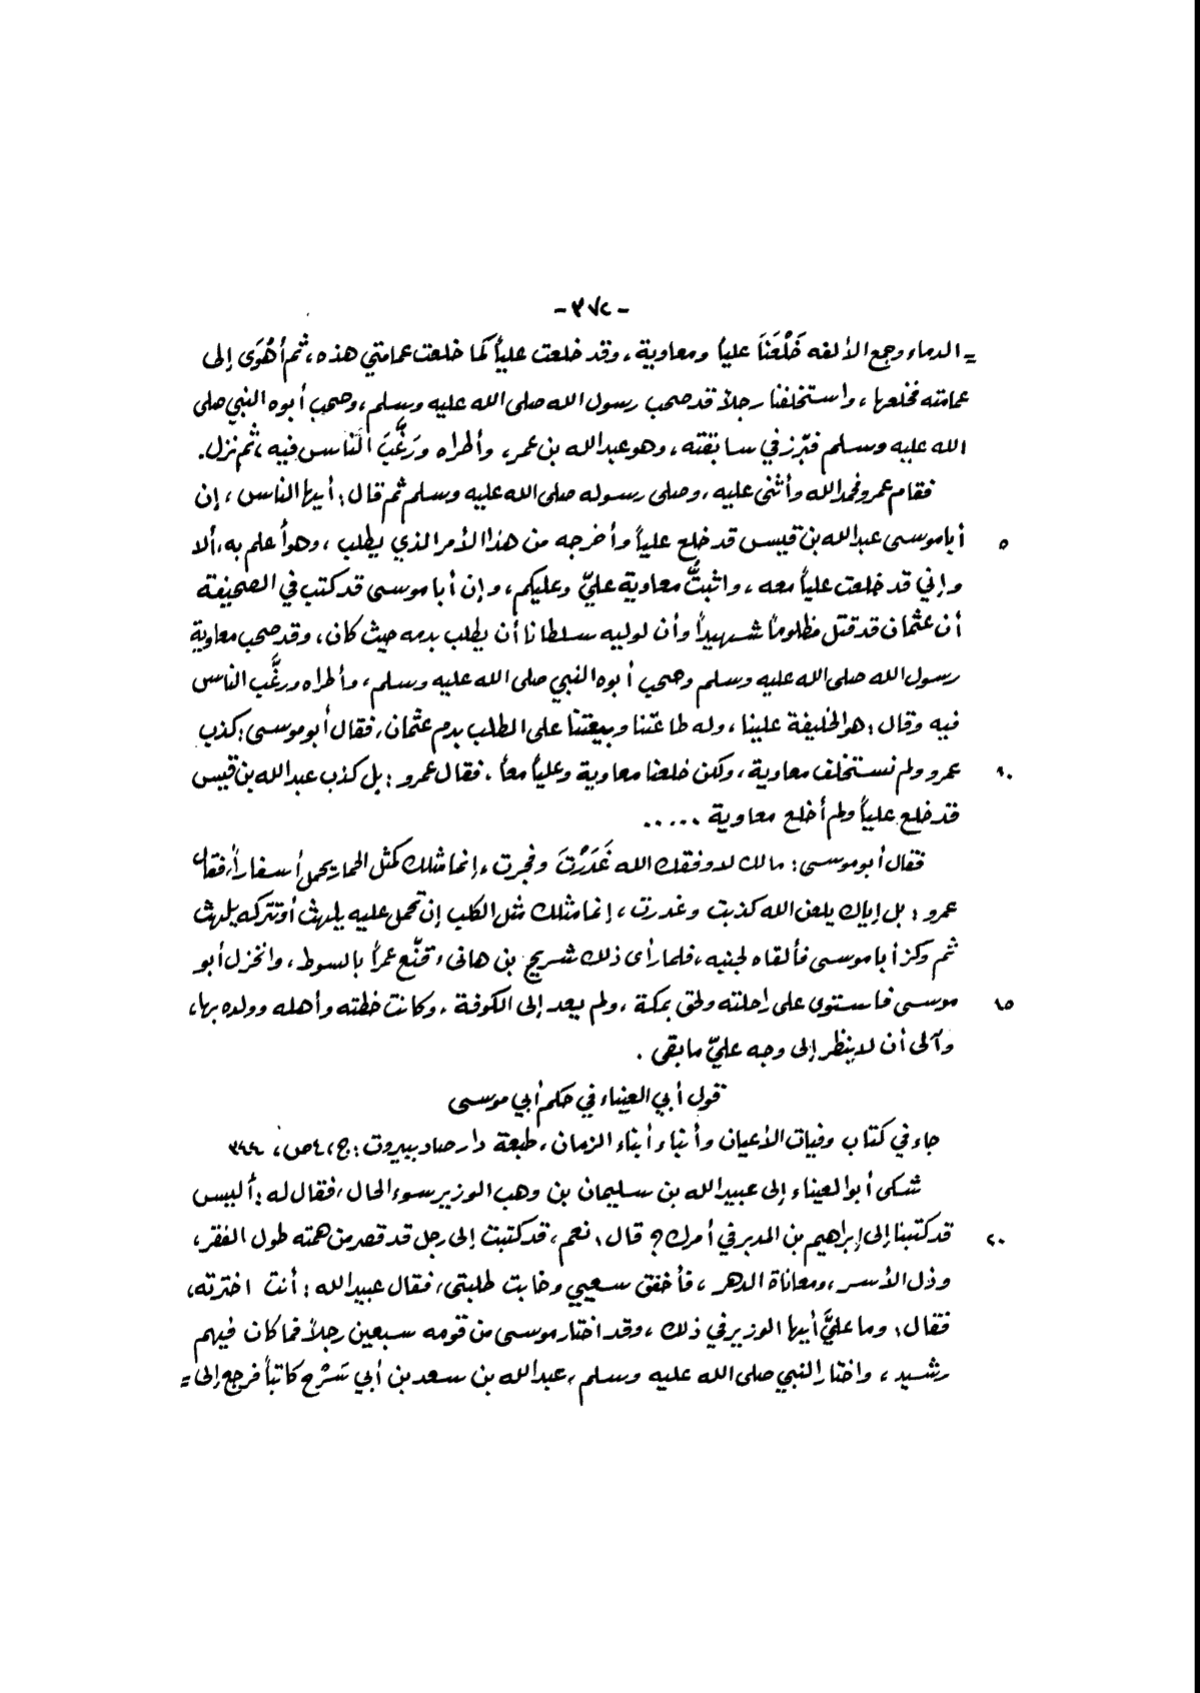 -٣٧٢-
= الدماء وجمع الألفه خَلْعَنَا علياً ومعاوية، وقد خلعت علياً كما خلعت عمامتي هذه، ثم أهْوَى إلى
عمامته فخلعها، واستخلفنا رجلاً قد صحب رسول الله صلى الله عليه وسلم، وصحب أبوه النبي صلى
الله عليه وسلم فبّرز في سابقته، وهو عبد الله بن عمر، وأطراه ورَغَّبَ النَاس فيه، ثم نزل.
فقام عمرو فحمد الله وأثنى عليه، وصلى رسوله صلى الله عليه وسلم ثم قال: أيها الناس، إن
٥ أبا موسى عبد الله بن قيس قد خلع علياً وأخرجه من هذا الأمر الذي يطلب، وهو أعلم به، ألا
وإني قد خلعت علياً معه، واثبتُّ معاوية عليّ وعليكم، وإن أبا موسى قد كتب في الصحيفة
أن عثمان قد قتل مظلوماً شهيداً وأن لوليه سلطانا أن يطلب بدمه حيث كان، وقد صحب معاوية
رسول الله صلى الله عليه وسلم وصحب أبوه النبي صلى الله عليه وسلم، وأطراه ورغَّب الناس
فيه وقال: هو الخليفة علينا، وله طاعتنا وبيعتنا على الطلب بدم عثمان، فقال أبو موسى: كذب
١٠ عمرو ولم نستخلف معاوية، ولكن خلعنا معاوية وعلياً معاً. فقال عمرو: بل كذب عبد الله بن قيس
قد خلع علياً ولم أخلع معاوية .....
فقال أبو موسى: مالك لا وفقك الله غَدَرْتَ وفجرت، إنما مثلك كمثل الحمار يحمل أسفاراً، فقال
عمرو: بل إياك يلعن الله كذبت وغدرت، إنما مثلك مثل الكلب إن تحمل عليه يلهث أو تتركه يلهث
ثم وكز أبا موسى فألقاه لجنبه، فلما رأى ذلك شريح بن هانىء قنّع عمراً بالسوط، وانخزل أبو
١٥ موسى فاستوى على راحلته ولحق بمكة، ولم يعد إلى الكوفة. وكانت خطته وأهله وولده بها،
وآلى أن لا ينظر إلى وجه عليّ ما بقى.
قول أبي العيناء في حكم أبي موسى
جاء في كتاب وفيات الأعيان وأنباء أبناء الزمان، طبعة دار صاد بيروت: ج، ٤ ص، ٣٤٤
شكى أبو العيناء إلى عبيد الله بن سليمان بن وهب الوزير سوء الحال، فقال له: أليس
٢٠ قد كتبنا إلى إبراهيم بن المدبر في أمرك؟ قال: نعم، قد كتبت إلى رجل قد قصر من همته طول الفقر،
وذل الأسر، ومعاناة الدهر، فأخفق سعيي وخابت طلبتى، فقال عبيد الله: أنت اخترته،
فقال: وما عليَّ أيها الوزير في ذلك، وقد اختار موسى من قومه سبعين رجلاً فما كان فيهم
رشيد، واختار النبي صلى الله عليه وسلم، عبد الله بن سعد بن أبي سَرْح كاتباً فرجع إلى =